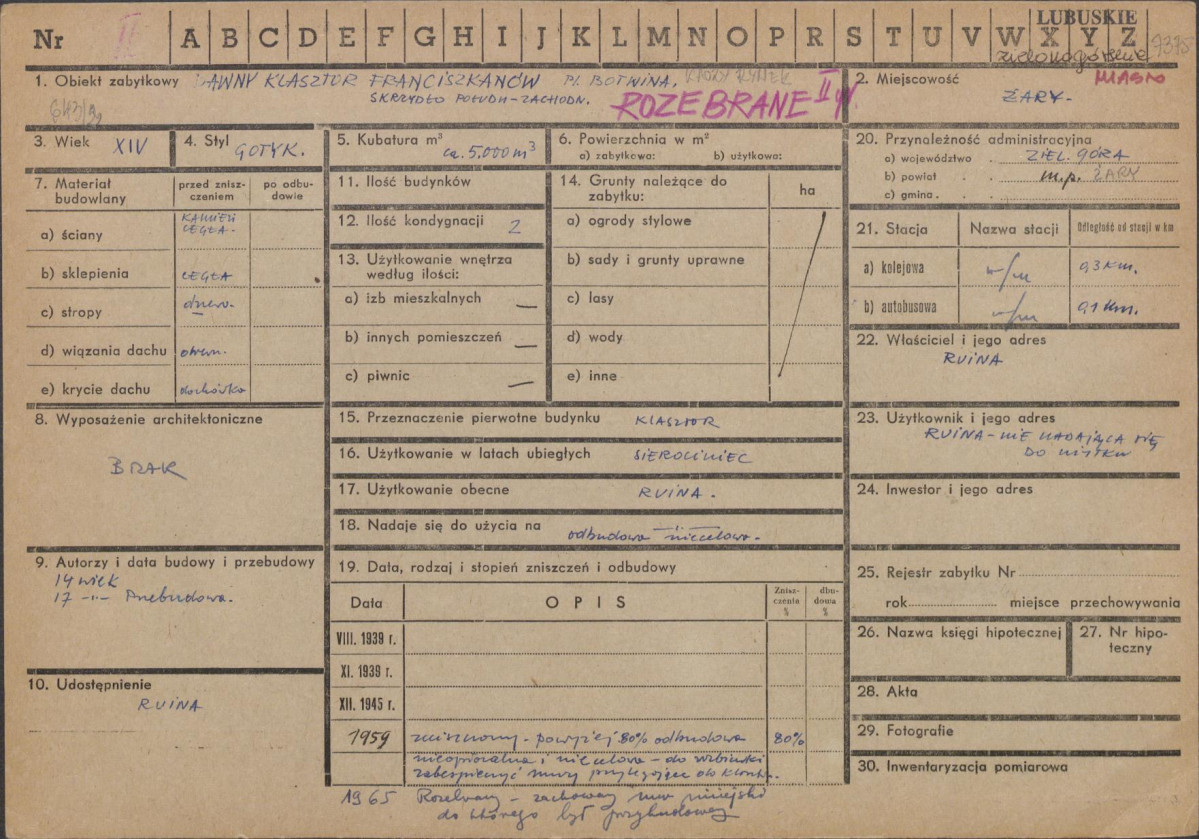 Nr II A B C D E F G H I J K L M N O P R S T U V W X Y Z
LUBUSKIE
zielonogórskie 7375
1. Obiekt zabytkowy DAWNY KLASZTOR FRANCISZKANÓW Pl. BOTWINA.
SKRZYDŁO POŁUDN-ZACHODN.
ROZEBRANE II
2. Miejscowość MIASTO
ŻARY.
3. Wiek XIV
4. Styl GOTYK.
5. Kubatura m³ ca. 5.000 m³
6. Powierzchnia w m²
a) zabytkowa: b) użytkowa:
7. Materiał budowlany
przed zniszczeniem
po odbudowie
a) ściany KAMIEŃ CEGŁA.
b) sklepienia CEGŁA
c) stropy drewn.
d) wiązania dachu drewn.
e) krycie dachu dachówka
8. Wyposażenie architektoniczne
BRAK
9. Autorzy i data budowy i przebudowy
14 wiek
17 -"- Przebudowa.
10. Udostępnienie
RUINA
11. Ilość budynków
12. Ilość kondygnacji 2
13. Użytkowanie wnętrza
według ilości:
a) izb mieszkalnych —
b) innych pomieszczeń —
c) piwnic —
14. Grunty należące do
zabytku:
ha
a) ogrody stylowe
b) sady i grunty uprawne
c) lasy
d) wody
e) inne
15. Przeznaczenie pierwotne budynku KLASZTOR
16. Użytkowanie w latach ubiegłych SIEROCINIEC
17. Użytkowanie obecne RUINA.
18. Nadaje się do użycia na odbudowa niecelowa.
19. Data, rodzaj i stopień zniszczeń i odbudowy
Data
OPIS
Zniszczenia %
dbudowa %
VIII. 1939 r.
XI. 1939 r.
XII. 1945 r.
1959 zniszczony - powyżej 80% odbudowa 80%
nieopłacalna i niecelowa - do rozbiórki
zabezpieczyć mury przylegające do
1965 Rozebrany - zachowany mur miejski
do którego był przybudowany
20. Przynależność administracyjna
a) województwo ZIEL. GÓRA
b) powiat m.p. ŻARY
c) gmina
21. Stacja
Nazwa stacji
Odległość od stacji w km
a) kolejowa w/m 0,3 km.
b) autobusowa w/m 0,1 km.
22. Właściciel i jego adres
RUINA
23. Użytkownik i jego adres
RUINA - NIE NADAJĄCA SIĘ
DO UŻYTKU
24. Inwestor i jego adres
25. Rejestr zabytku Nr
rok miejsce przechowywania
26. Nazwa księgi hipotecznej
27. Nr hipoteczny
28. Akta
29. Fotografie
30. Inwentaryzacja pomiarowa